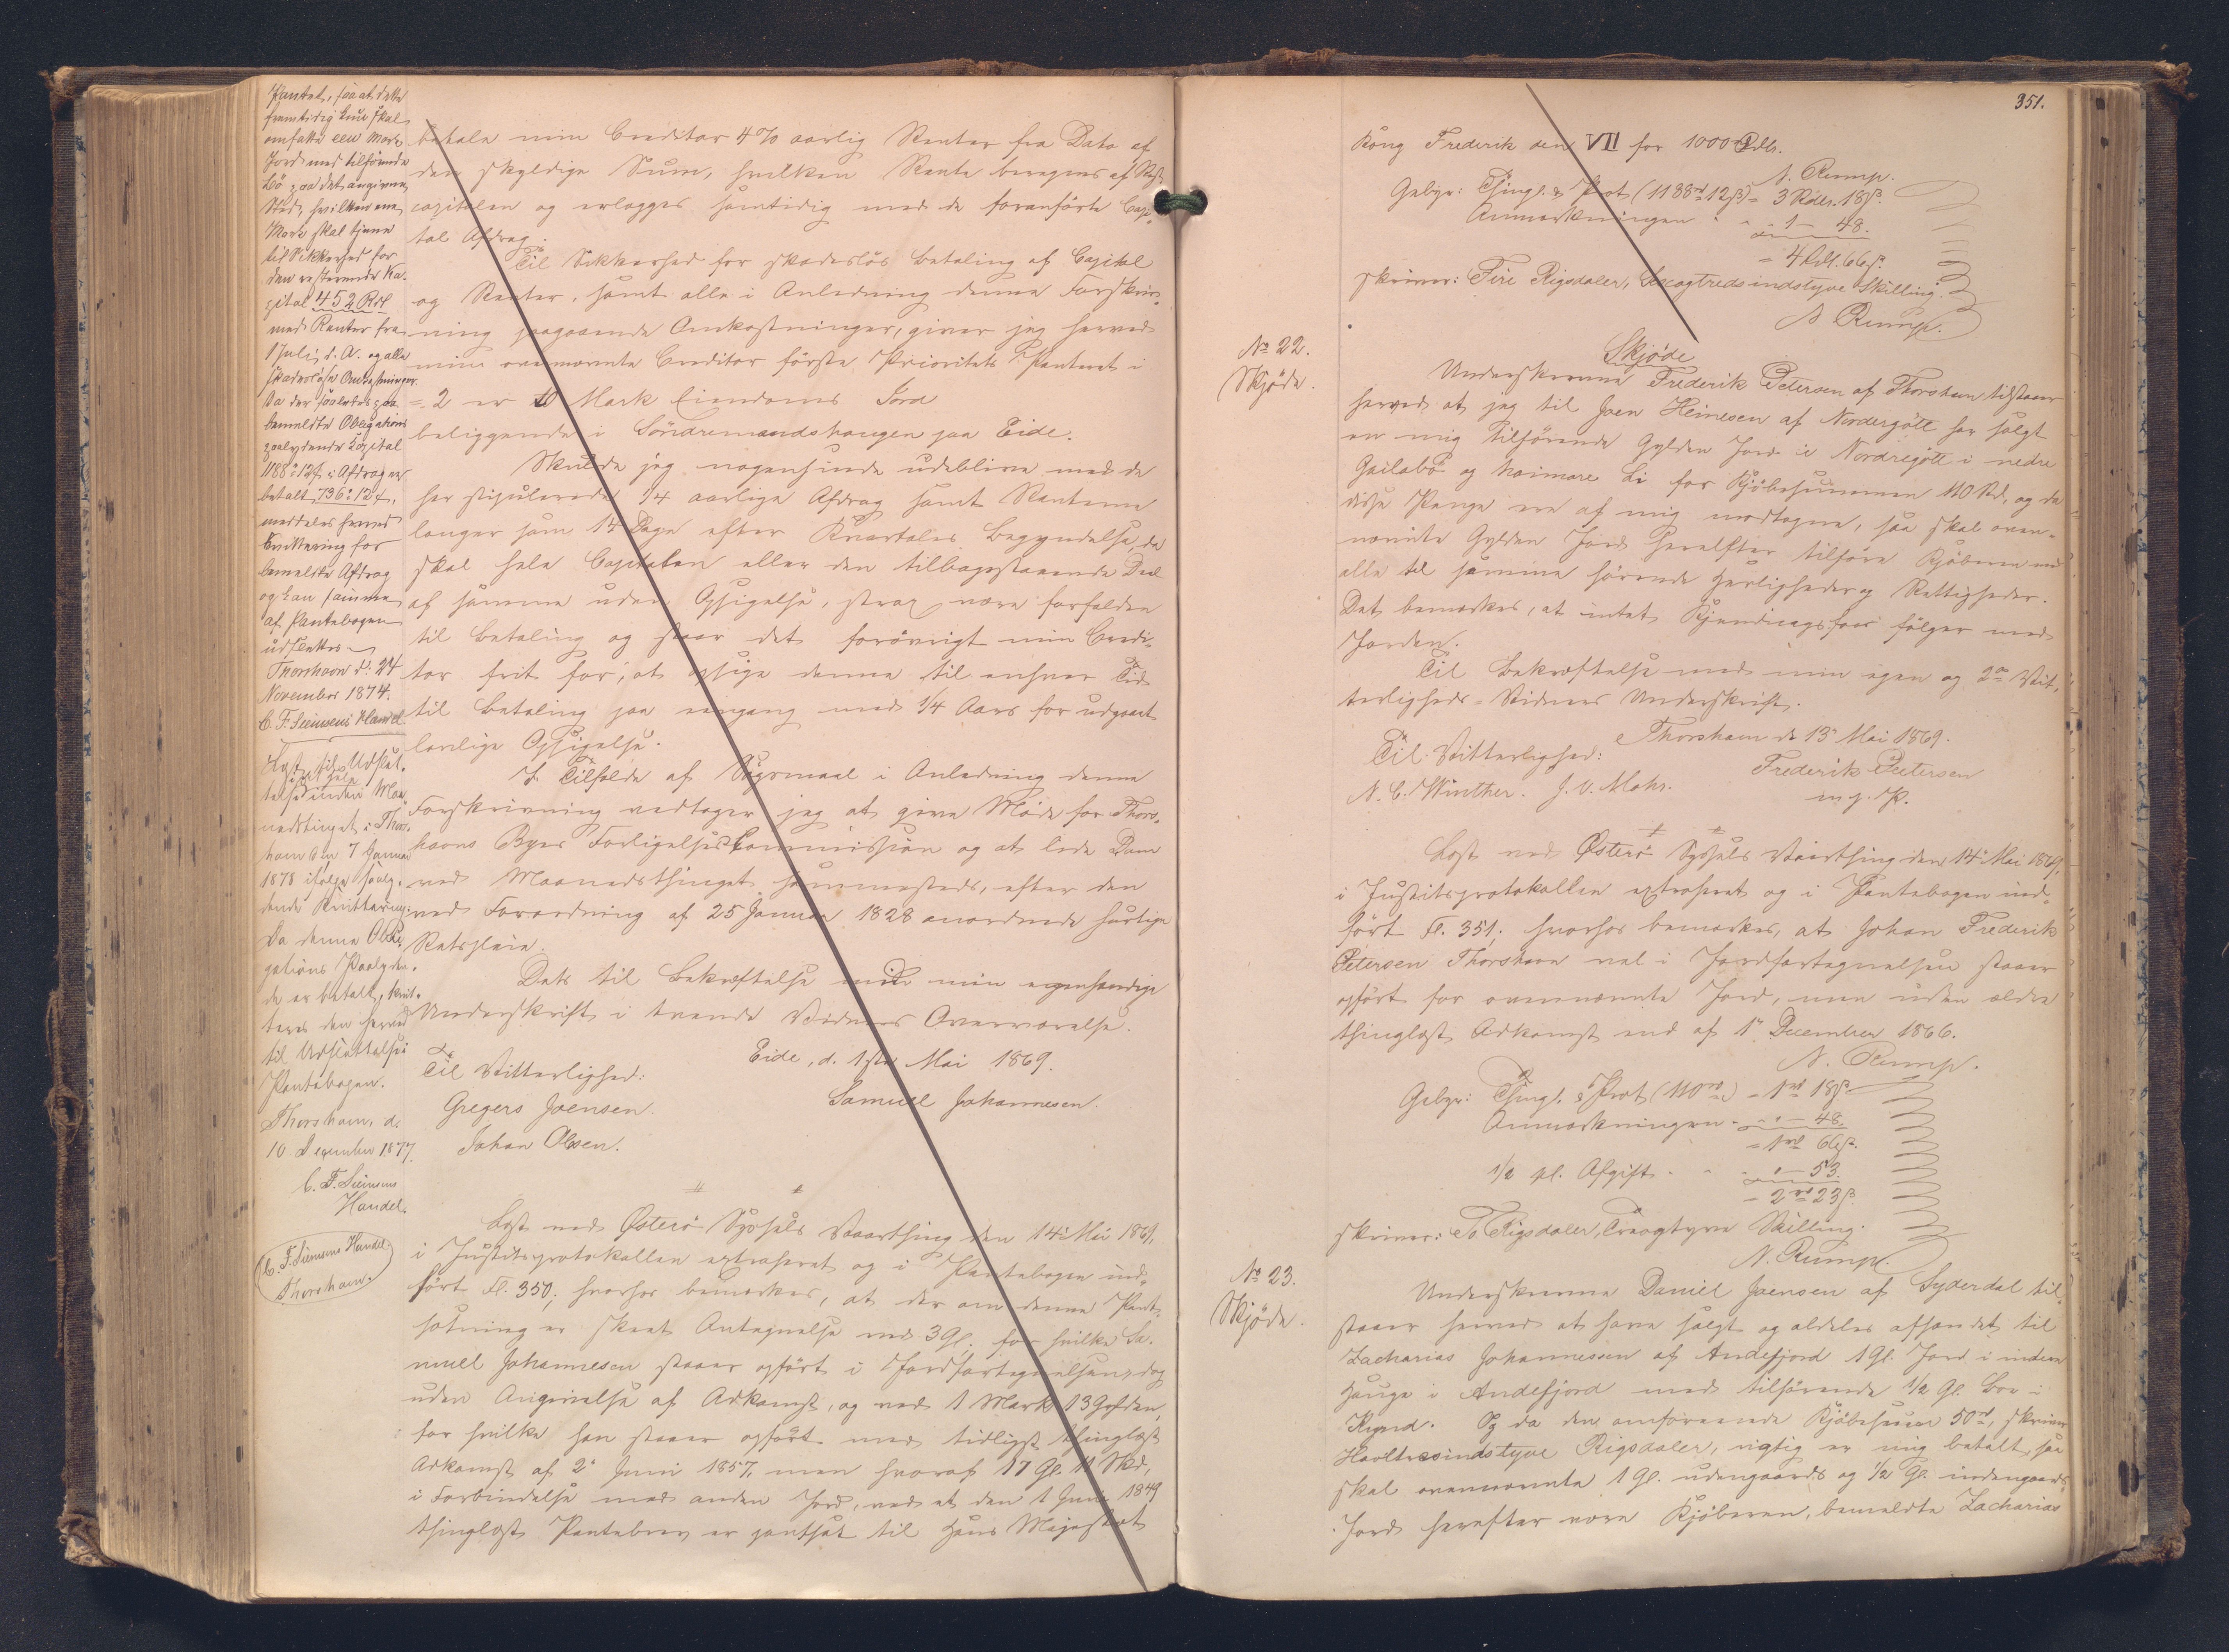 Pantet, saa at dette
fremtidig kun skal
omfatte een Mark
Jord med tilhørende
Bø paa det angivne
Sted, hvilken ene
Mark skal tjene
til Sikkerhed for
den resterende Ka-
pital 452 Rdl
med Renter fra
1 Juli d. A. og alle
skadesløse Omkostninger.
Da der saaledes paa
bemeldte Obligations
paalydende Capital
1188 " 12 ß i Afdrag er
betalt 736 " 12 ß,
meddeles herved
Qvittering for
bemeldte Afdrag
og kan samme
af Pantebogen
udslettes.
Thorshavn d: 24
November 1874.
C. F. Siemsens Handel
Lyst til Udslet-
telse inden Maa-
nedstinget i Thors-
havn den 7 Januar
1878 ifølge saaly-
dende Kvittering:
Da denne Obli-
gations Paalyden-
de er betalt, kvit-
teres den herved
til Udslettelse i
Pantebogen.
Thorshavn, d.
10 December 1877.
C. F. Siemsens
Handel.
C. F. Siemsens Handel.
Thorshavn.
betale min Creditor 4 % aarlig Renter fra Dato af
den skyldige Sum, hvilken Rente beregnes af Rest-
capitalen og erlægges samtidig med de foranførte Capi-
tal Afdrag.
Til Sikkerhed for skadesløs Betaling af Capital
og Renter, samt alle i Anledning denne Forskriv-
ning paagaaende Omkostninger, giver jeg herved
min ovennævnte Creditor første Prioritets Panteret i
= 2 er to Mark Eiendoms Jord
beliggende i Søndremandshaugen paa Eide.
Skulde jeg nogensinde udeblive med de
her stipulerede 1/4 aarlige Afdrag samt Renterne
længer som 14 Dage efter Kvartalets Begyndelse, da
skal hele Capitalen eller den tilbagestaaende Deel
af samme uden Opsigelse, strax være forfalden
til Betaling og staar det forøvrigt min Credi-
tor frit for, at opsige denne til enhver Tid
til Betaling paa eengang med 1/4 Aars forudgaaet
lovlige Opsigelse.
I Tilfælde af Søgsmaal i Anledning denne
Forskrivning vedtager jeg at give Møde for Thors-
havns Byes Forligelses Commission og at lide Dom
ved Maanedsthinget sammesteds, efter den
ved Forordning af 25 Januar 1828 anordnede hurtige
Retspleie.
Dets til Bekræftelse med min egenhændige
Underskrift i tvende Vidners Overværelse.
Eide, d. 1ste Mai 1869.
Til Vitterlighed:
Samuel Johannesen.
Gregers Joensen.
Johan Olsen.
Læst ved Østerø Syssels Vaarthing den 14de Mai 1869,
i Justitsprotokollen extraheret og i Pantebogen ind-
ført Fl. 350; hvorhos bemærkes, at der om denne Pant-
sætning er skeet Antegnelse ved 3 Gl. for hvilke Sa-
muel Johannesen staaer opført i Jordfortegnelsen, dog
uden Angivelse af Adkomst, og ved 1 Mark 13 Gylden,
for hvilke han staaer opført med tidligst thinglæst
Adkomst af 2' Juni 1857, men hvoraf 17 Gl. 11 Skd,
i Forbindelse med anden Jord, ved et den 1 Juni 1849
thinglæst Pantebrev er pantsat til Hans Majestæt
351.
Kong Frederik den VII for 1000 Rdlr.
N. Rump.
Gebyr: Thingl. & Prot (1188 rd 12 ß) = 3 Rdlr. 18 ß.
Anmærkningen " - 1 - 48.
= 4 Rdl. 66 ß.
skriver: Fire Rigsdaler, Sexogtredsindstyve Skilling.
N. Rump.
No 22.
Skjøde.
Skjøde
Underskrevne Frederik Petersen af Thorshavn tilstaaer
herved at jeg til Joen Heinesen af Nordregøte har solgt
en mig tilhørende Gylden Jord i Nordregøte i nedre
Gailabø og Haimare Li for Kjøbesummen 110 Rd, og da
disse Penge ere af mig modtagne, saa skal oven-
nævnte Gylden Jord herefter tilhøre Kjøberen med
alle til samme hørende Herligheder og Rettigheder.
Det bemærkes, at intet Kjendinagsfaar følger med
Jorden.
Til Bekræftelse med min egen og 2de Vit-
terligheds-Vidners Underskrift.
Thorshavn d: 13' Mai 1869.
Til Vitterlighed:
Frederik Petersen
N. C. Winther. J. V. Mohr.
m. f. P.
Læst ved Østerø Syssels Vaarthing den 14de Mai 1869,
i Justitsprotokollen extraheret og i Pantebogen ind-
ført Fl. 351; hvorhos bemærkes, at Johan Frederik
Petersen Thorshavn vel i Jordfortegnelsen staaer
opført for ovennævnte Jord, men uden ældre
thinglæst Adkomst end af 1' December 1866.
N. Rump.
Gebyr: Thingl. & Prot (110 rd) - 1 rd 18 ß
Anmærkningen - " - 48.
= 1 rd 66 ß.
1/2 pCt. Afgift - " - 53.
= 2 rd 23 ß.
skriver: To Rigsdaler, Treogtyve Skilling.
N. Rump.
No 23.
Skjøde.
Underskrevne Daniel Joensen af Syderdal til-
staaer herved at have solgt og aldeles afhændet til
Zacharias Johannesen af Andefjord 1 Gl. Jord i indere
Hauge i Andefjord med tilhørende 1/2 Gl. Bø i
Kyrid. Og da den omforenede Kjøbesum 50 rd, skriver
Halvtresindstyve Rigsdaler, rigtig er mig betalt, saa
skal ovennævnte 1 Gl. udengaards og 1/2 Gl. indengaards
Jord herefter være Kjøberen, bemeldte Zacharias